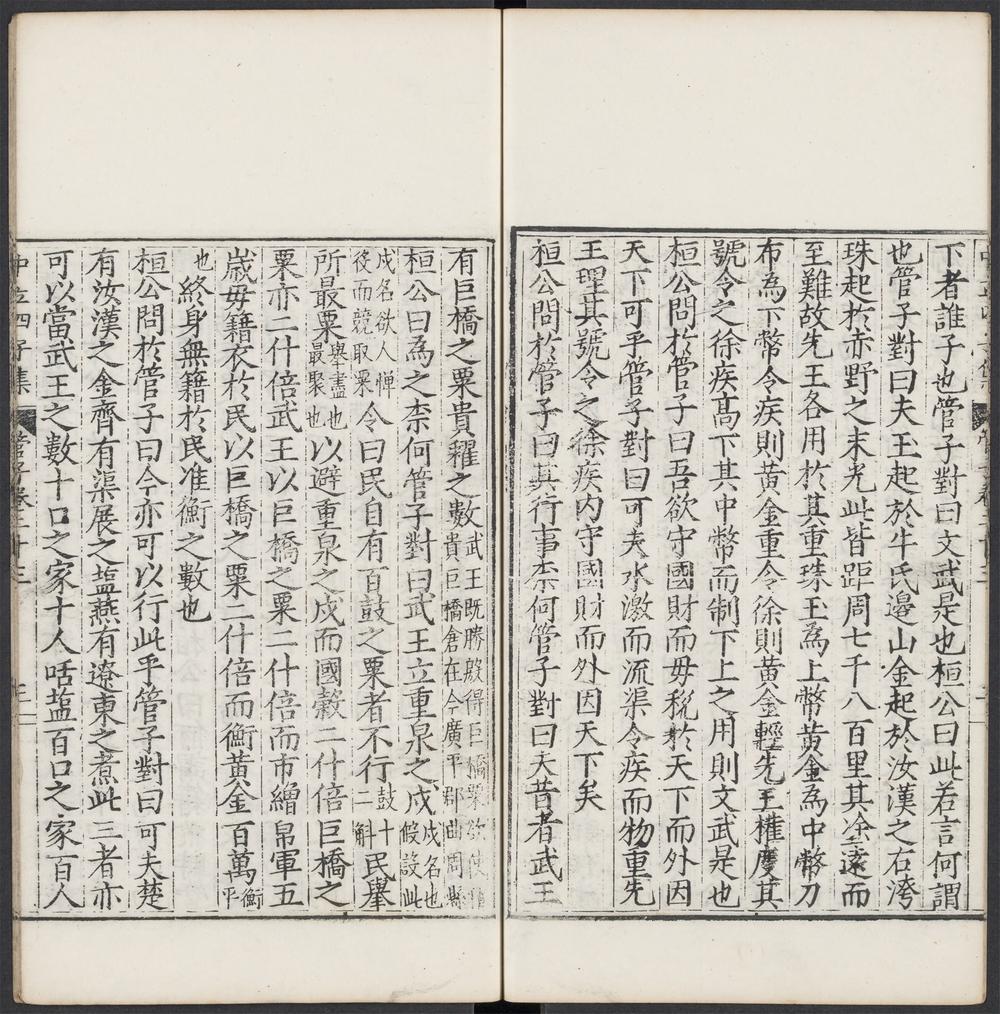 下者誰子也管子對曰文武是也桓公曰此若言何謂
也管子對曰夫玉起於牛氏邊山金起於汝漢之右洿
珠起於赤野之末光此皆距周七千八百里其塗遠而
至難故先王各用於其重珠玉爲上幣黃金為中幣刀
布為下幣令疾則黃金重令徐則黃金輕先王權度其
號令之徐疾高下其中幣而制下上之用則文武是也
桓公問於管子曰吾欲守國財而毋稅於天下而外因
天下可乎管子對曰可夫水激而流渠令疾而物重先
王理其號令之徐疾内守國財而外因天下矣
桓公問於管子曰其行事柰何管子對曰夫昔者武王
有巨橋之粟貴糴之數武王既勝殷得巨橋粟欲使糴貴巨橋倉在今廣平郡曲周縣
桓公曰為之柰何管子對曰武王立重泉之戍戍名也假設此
戍名欲人憚後而競取粟令曰民自有百鼓之粟者不行鼓十二斛民舉
所最粟舉盡也最聚也以避重泉之戍而國穀二什倍巨橋之
粟亦二什倍武王以巨橋之粟二什倍而市繒帛軍五
歲毋籍衣於民以巨橋之粟二什倍而衡黃金百萬衡平
也終身無籍於民准衡之數也
桓公問於管子曰今亦可以行此乎管子對曰可夫楚
有汝漢之金齊有渠展之塩燕有遼東之煮此三者亦
可以當武王之數十口之家十人咶塩百口之家百人
中立四子集 管子卷二十三